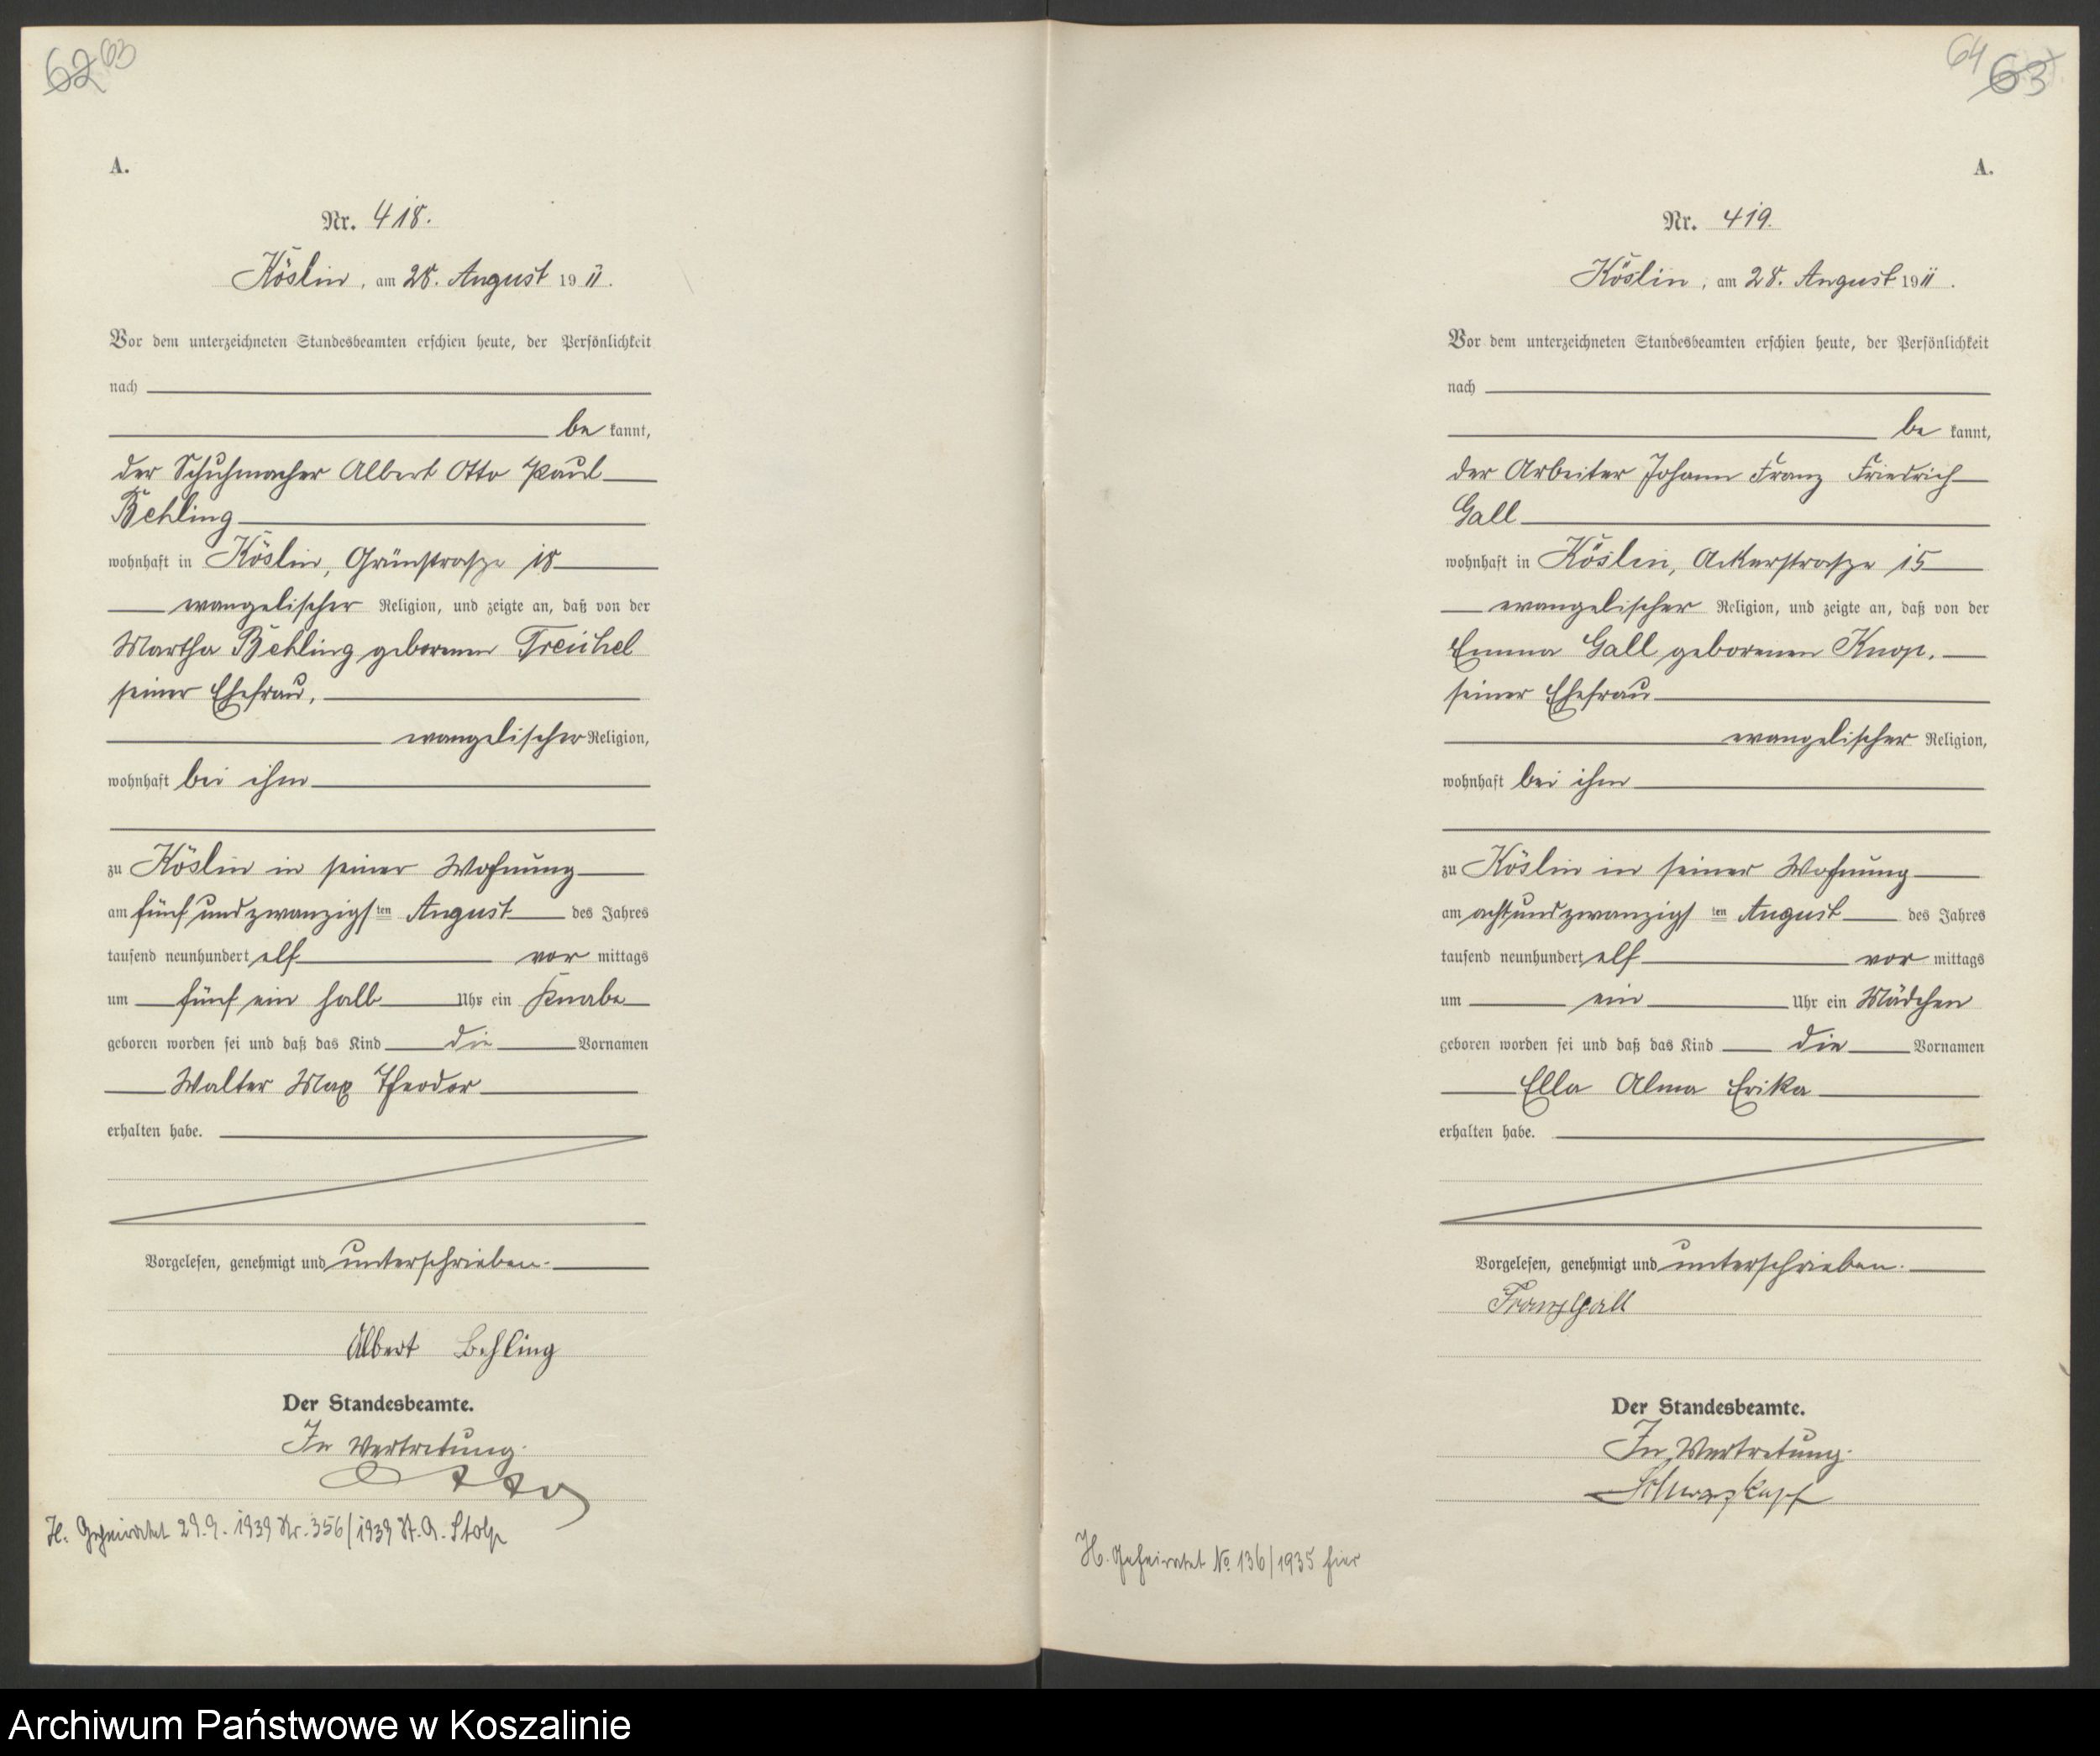 62 63
A.
Nr. 418.
Köslin, am 28. August 19 11.
Vor dem unterzeichneten Standesbeamten erschien heute, der Persönlichkeit
nach
be kannt,
der Schuhmacher Albert Otto Paul
Behling
wohnhaft in Köslin, Grünstraße 18
evangelischer Religion, und zeigte an, daß von der
Martha Behling geborenen Treichel
seiner Ehefrau,
evangelischer Religion,
wohnhaft bei ihm
zu Köslin in seiner Wohnung
am fünfundzwanzigsten August des Jahres
tausend neunhundert elf vor mittags
um fünf ein halb Uhr ein Knabe
geboren worden sei und daß das Kind die Vornamen
Walter Max Theodor
erhalten habe.
Vorgelesen, genehmigt und unterschrieben.
Albert Behling
Der Standesbeamte.
In Vertretung.
H. Geheiratet 29.9.1939 Nr. 356/1939 St. A. Stolp
64 63
A.
Nr. 419.
Köslin, am 28. August 19 11.
Vor dem unterzeichneten Standesbeamten erschien heute, der Persönlichkeit
nach
be kannt,
der Arbeiter Johann Franz Friedrich
Gall
wohnhaft in Köslin, Ackerstraße 15
evangelischer Religion, und zeigte an, daß von der
Emma Gall geborenen Knop,
seiner Ehefrau
evangelischer Religion,
wohnhaft bei ihm
zu Köslin in seiner Wohnung
am achtundzwanzigsten August des Jahres
tausend neunhundert elf vor mittags
um ein Uhr ein Mädchen
geboren worden sei und daß das Kind die Vornamen
Ella Alma Erika
erhalten habe.
Vorgelesen, genehmigt und unterschrieben.
Franz Gall
Der Standesbeamte.
In Vertretung.
H. Geheiratet No 136/1935 hier
Archiwum Państwowe w Koszalinie